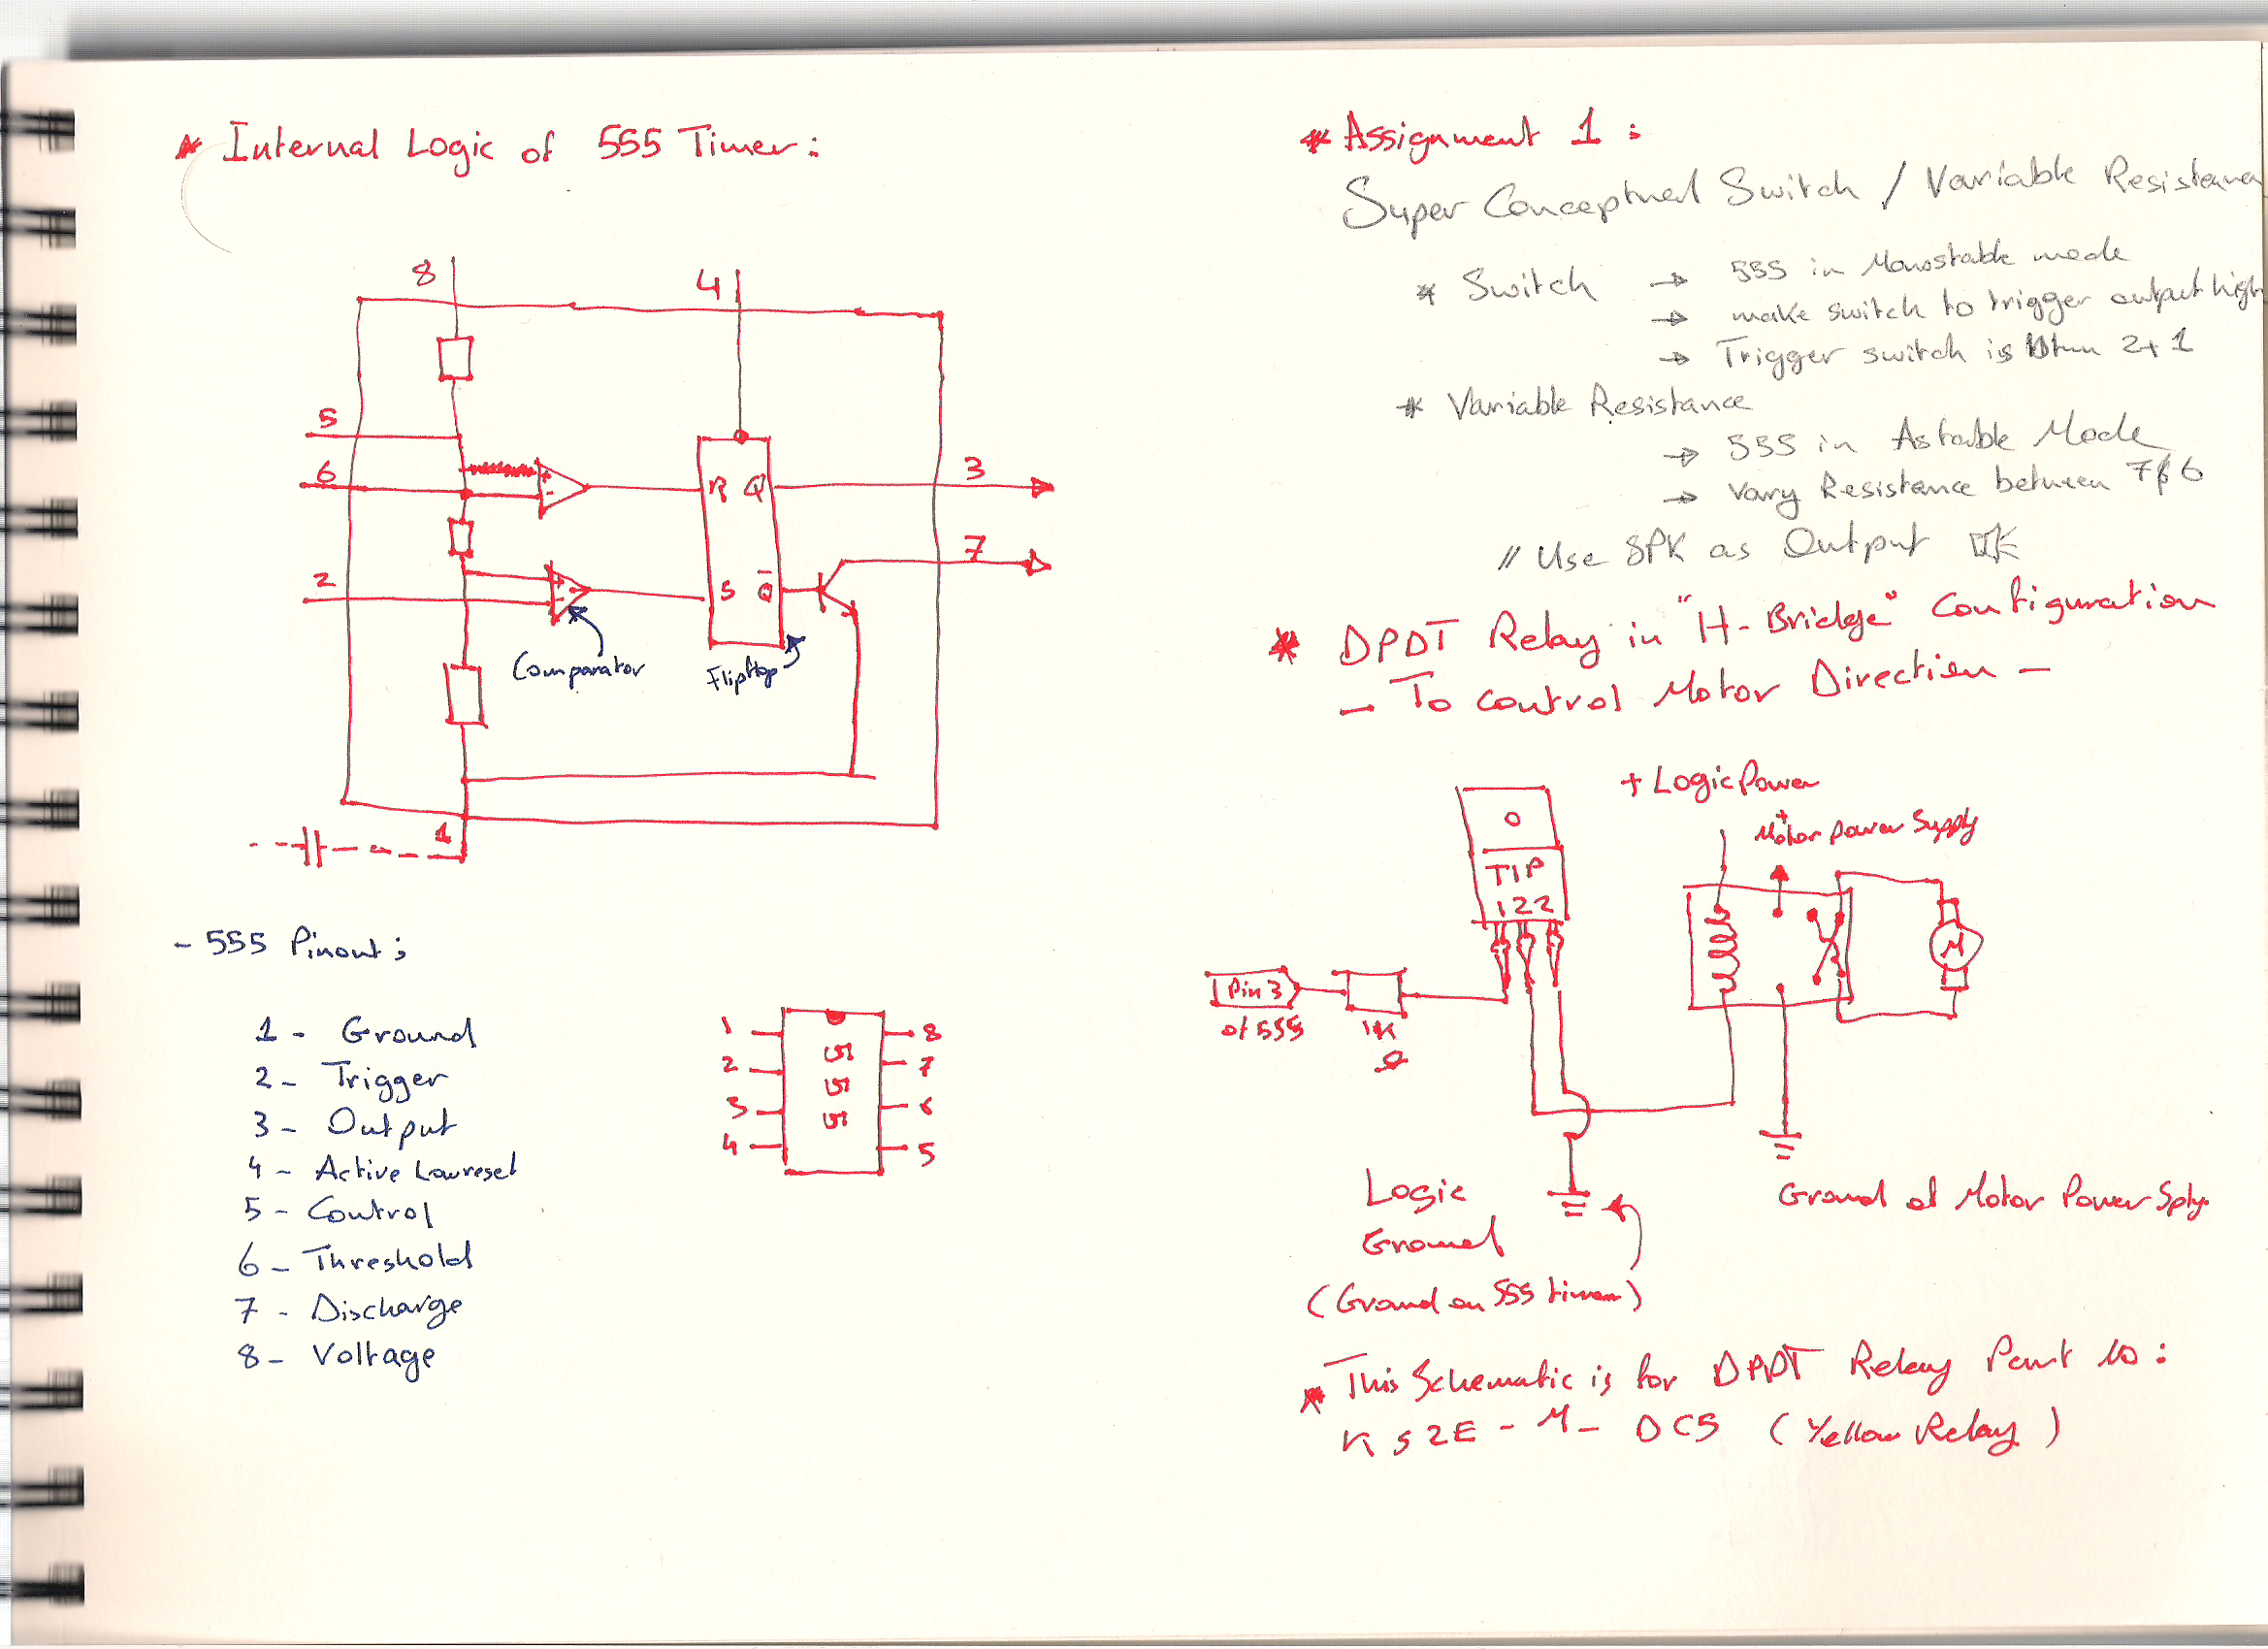 * Internal Logic of 555 Timer:
8
4
5
6
+
-
R Q
3
7
2
+
-
S Q̅
Comparator
Flipflop
1
- 555 Pinout:
1 - Ground
2 - Trigger
3 - Output
4 - Active Low reset
5 - Control
6 - Threshold
7 - Discharge
8 - Voltage
1
2
3
4
555
8
7
6
5
* Assignment 1 :
Super Conceptual Switch / Variable Resistance
* Switch → 555 in Monostable mode
→ make switch to trigger output high
→ Trigger switch is btwn 2+1
* Variable Resistance
→ 555 in Astable Mode
→ Vary Resistance between 7 & 6
// Use SPK as Output
* DPDT Relay in "H-Bridge" Configuration
- To control Motor Direction -
+ Logic Power
+
Motor power Supply
TIP
122
M
Pin 3
of 555
1K
Ω
Logic
Ground
(Ground on 555 timer)
Ground of Motor Power Sply.
* This Schematic is for DPDT Relay Part no:
KS2E - M - DC5 (Yellow Relay)